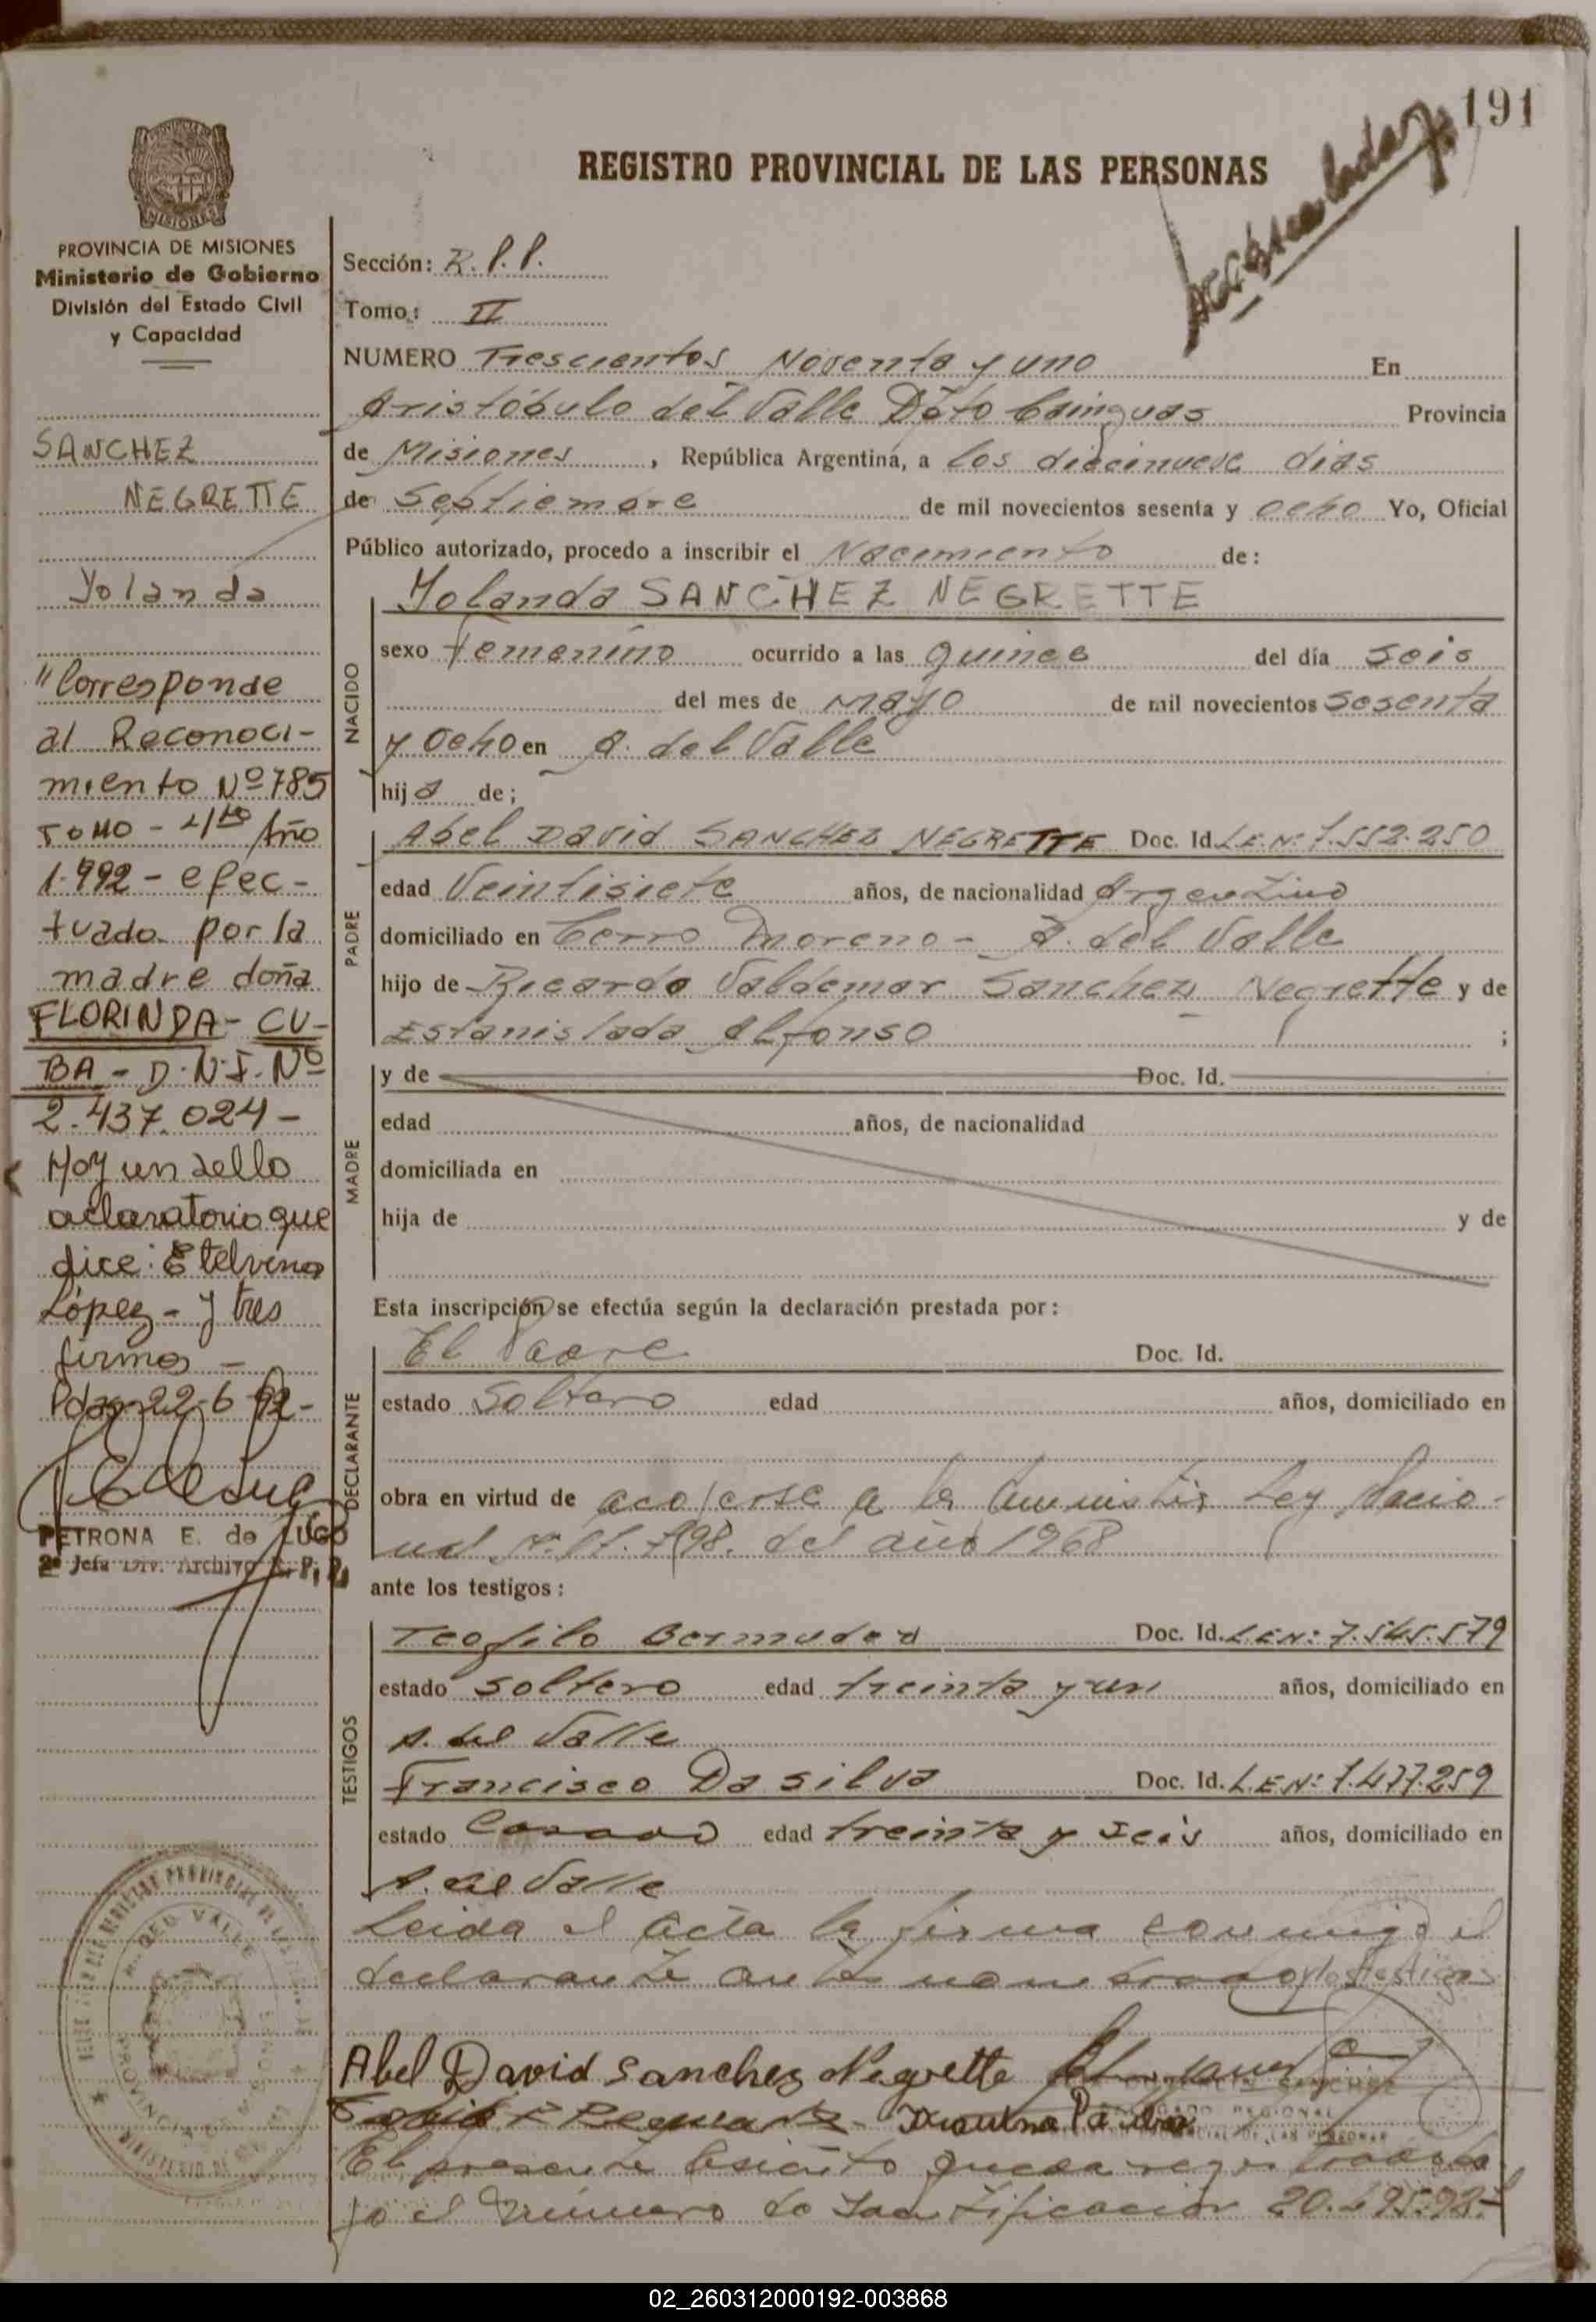 191
REGISTRO PROVINCIAL DE LAS PERSONAS
MISIONES
PROVINCIA DE MISIONES
Ministerio de Gobierno
División del Estado Civil
y Capacidad
SANCHEZ
NEGRETTE
Yolanda
"Corresponde
al Reconoci-
miento Nº 785
TOMO - 4to Año
1.992 - efec-
tuado por la
madre doña
FLORINDA - CU-
BA - D.N.I. Nº
2.437.024 -
Hoy un sello
aclaratorio que
dice: Etelvina
López - y tres
firmas -
Pdas 22-6-92-
PETRONA E. de LUGO
2º Jefa Div. Archivo R. P. P.
Sección: R.P.P.
Tomo: II
NUMERO Trescientos Noventa y uno En
Aristóbulo del Valle Dpto Cainguas Provincia
de Misiones, República Argentina, a los diecinueve dias
de Septiembre de mil novecientos sesenta y ocho Yo, Oficial
Público autorizado, procedo a inscribir el Nacimiento de:
NACIDO
Yolanda SANCHEZ NEGRETTE
sexo femenino ocurrido a las quince del día seis
del mes de mayo de mil novecientos sesenta
y ocho en A. del Valle
hija de;
PADRE
Abel David SANCHEZ NEGRETTE Doc. Id. L.E.Nº 7.552.250
edad Veintisiete años, de nacionalidad Argentino
domiciliado en Cerro Moreno - A. del Valle
hijo de Ricardo Valdemar Sanchez Negrette y de
Estanislada Alfonso ;
MADRE
y de Doc. Id.
edad años, de nacionalidad
domiciliada en
hija de y de
Esta inscripción se efectúa según la declaración prestada por:
DECLARANTE
El Padre Doc. Id.
estado Soltero edad años, domiciliado en
obra en virtud de acojerse a la Amnistia Ley Nacio-
nal Nº 17.798. del año 1968
ante los testigos:
TESTIGOS
Teofilo Bermudez Doc. Id. L.E.Nº 7.545.579
estado soltero edad treinta y un años, domiciliado en
A. del Valle
Francisco Da silva Doc. Id. L.E.Nº 7.477.259
estado Casado edad treinta y seis años, domiciliado en
A. del Valle
Leida el Acta la firma conmigo el
declarante
Abel David Sanchez Negrette
El presente Asiento queda registrado ba
jo el Número de Identificación
A. DEL VALLE
02_260312000192-003868